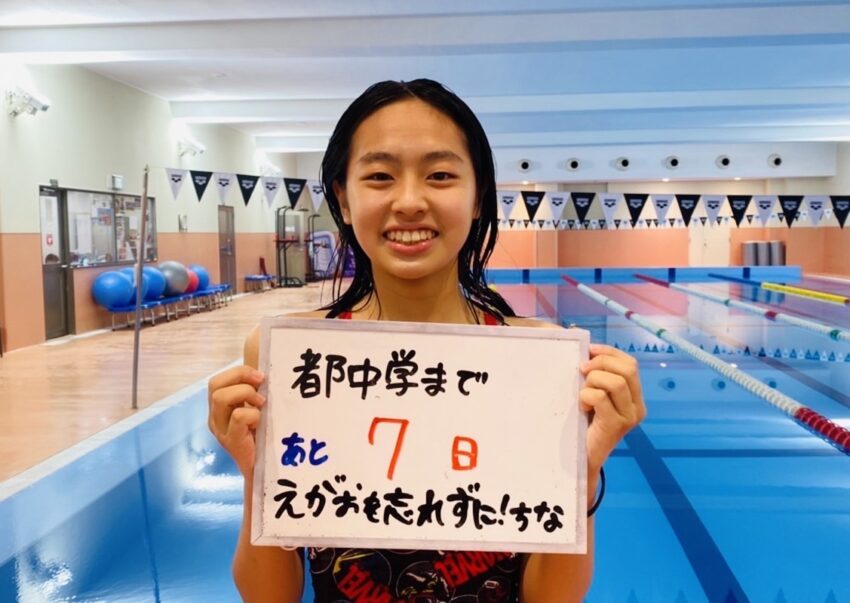 都中学まで
あと 7 日
えがおも忘れずに！ちな
MARVEL